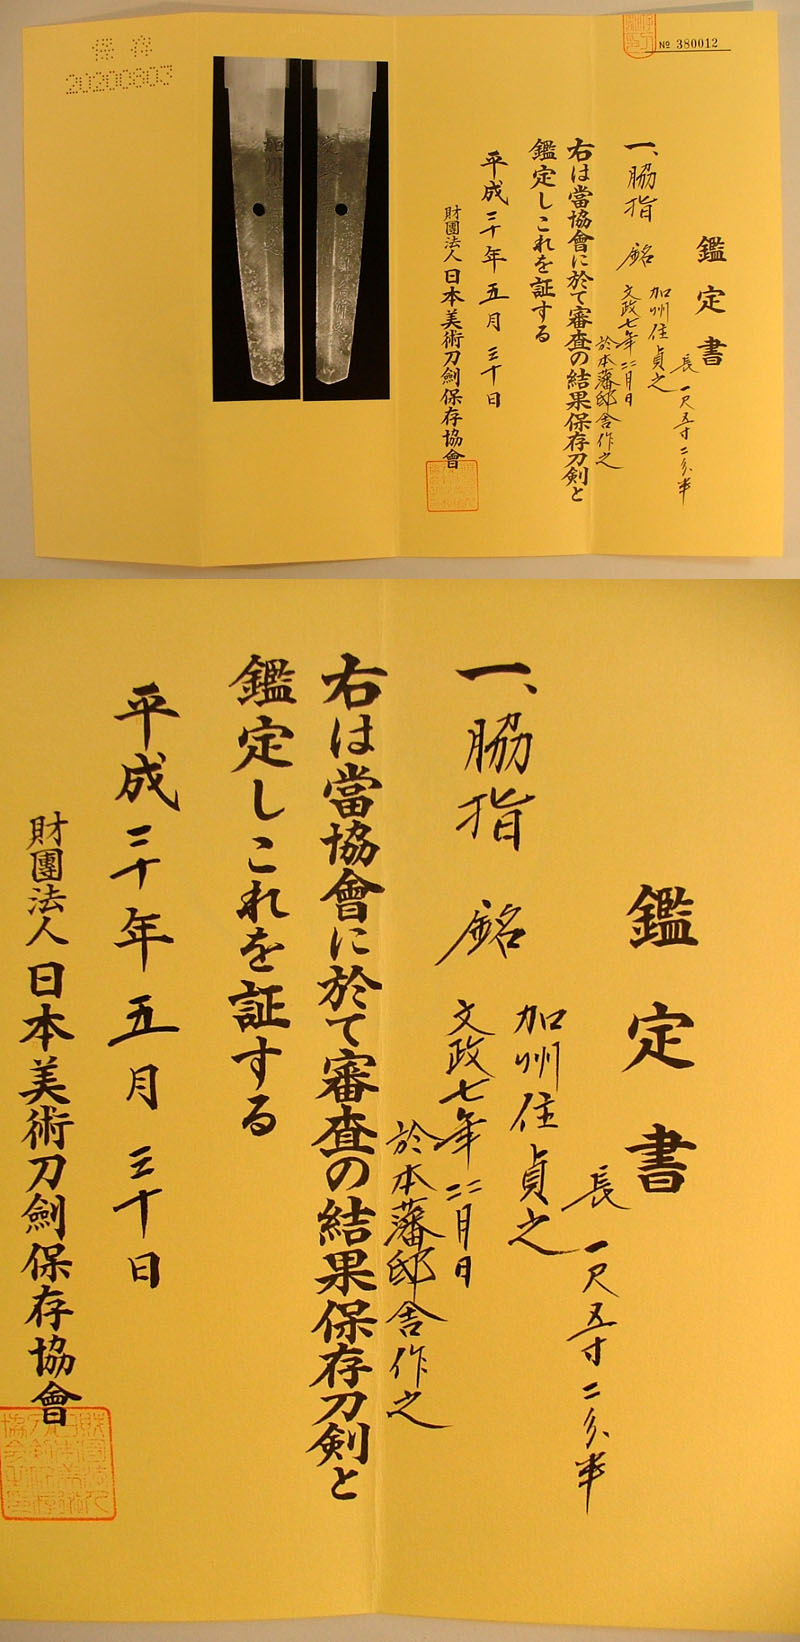 保存
20200803
№ 380012
鑑定書
長 一尺五寸二分半
一、脇指 銘 加州住貞之
文政七年二二月日
於本藩邸舎作之
右は當協會に於て審査の結果保存刀剣と
鑑定しこれを証する
平成三十年五月三十日
財團法人日本美術刀劍保存協會
鑑定書
長 一尺五寸二分半
一、脇指 銘 加州住貞之
文政七年二二月日
於本藩邸舎作之
右は當協會に於て審査の結果保存刀剣と
鑑定しこれを証する
平成三十年五月三十日
財團法人日本美術刀劍保存協會